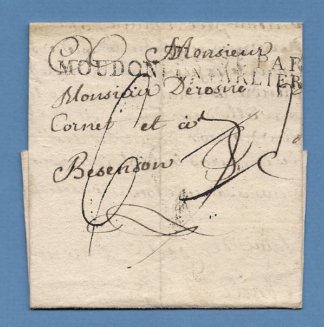 Monsieur
MOUDON
PAR
PONTARLIER
Monsieur Derosne
Cornet et à
Besenson